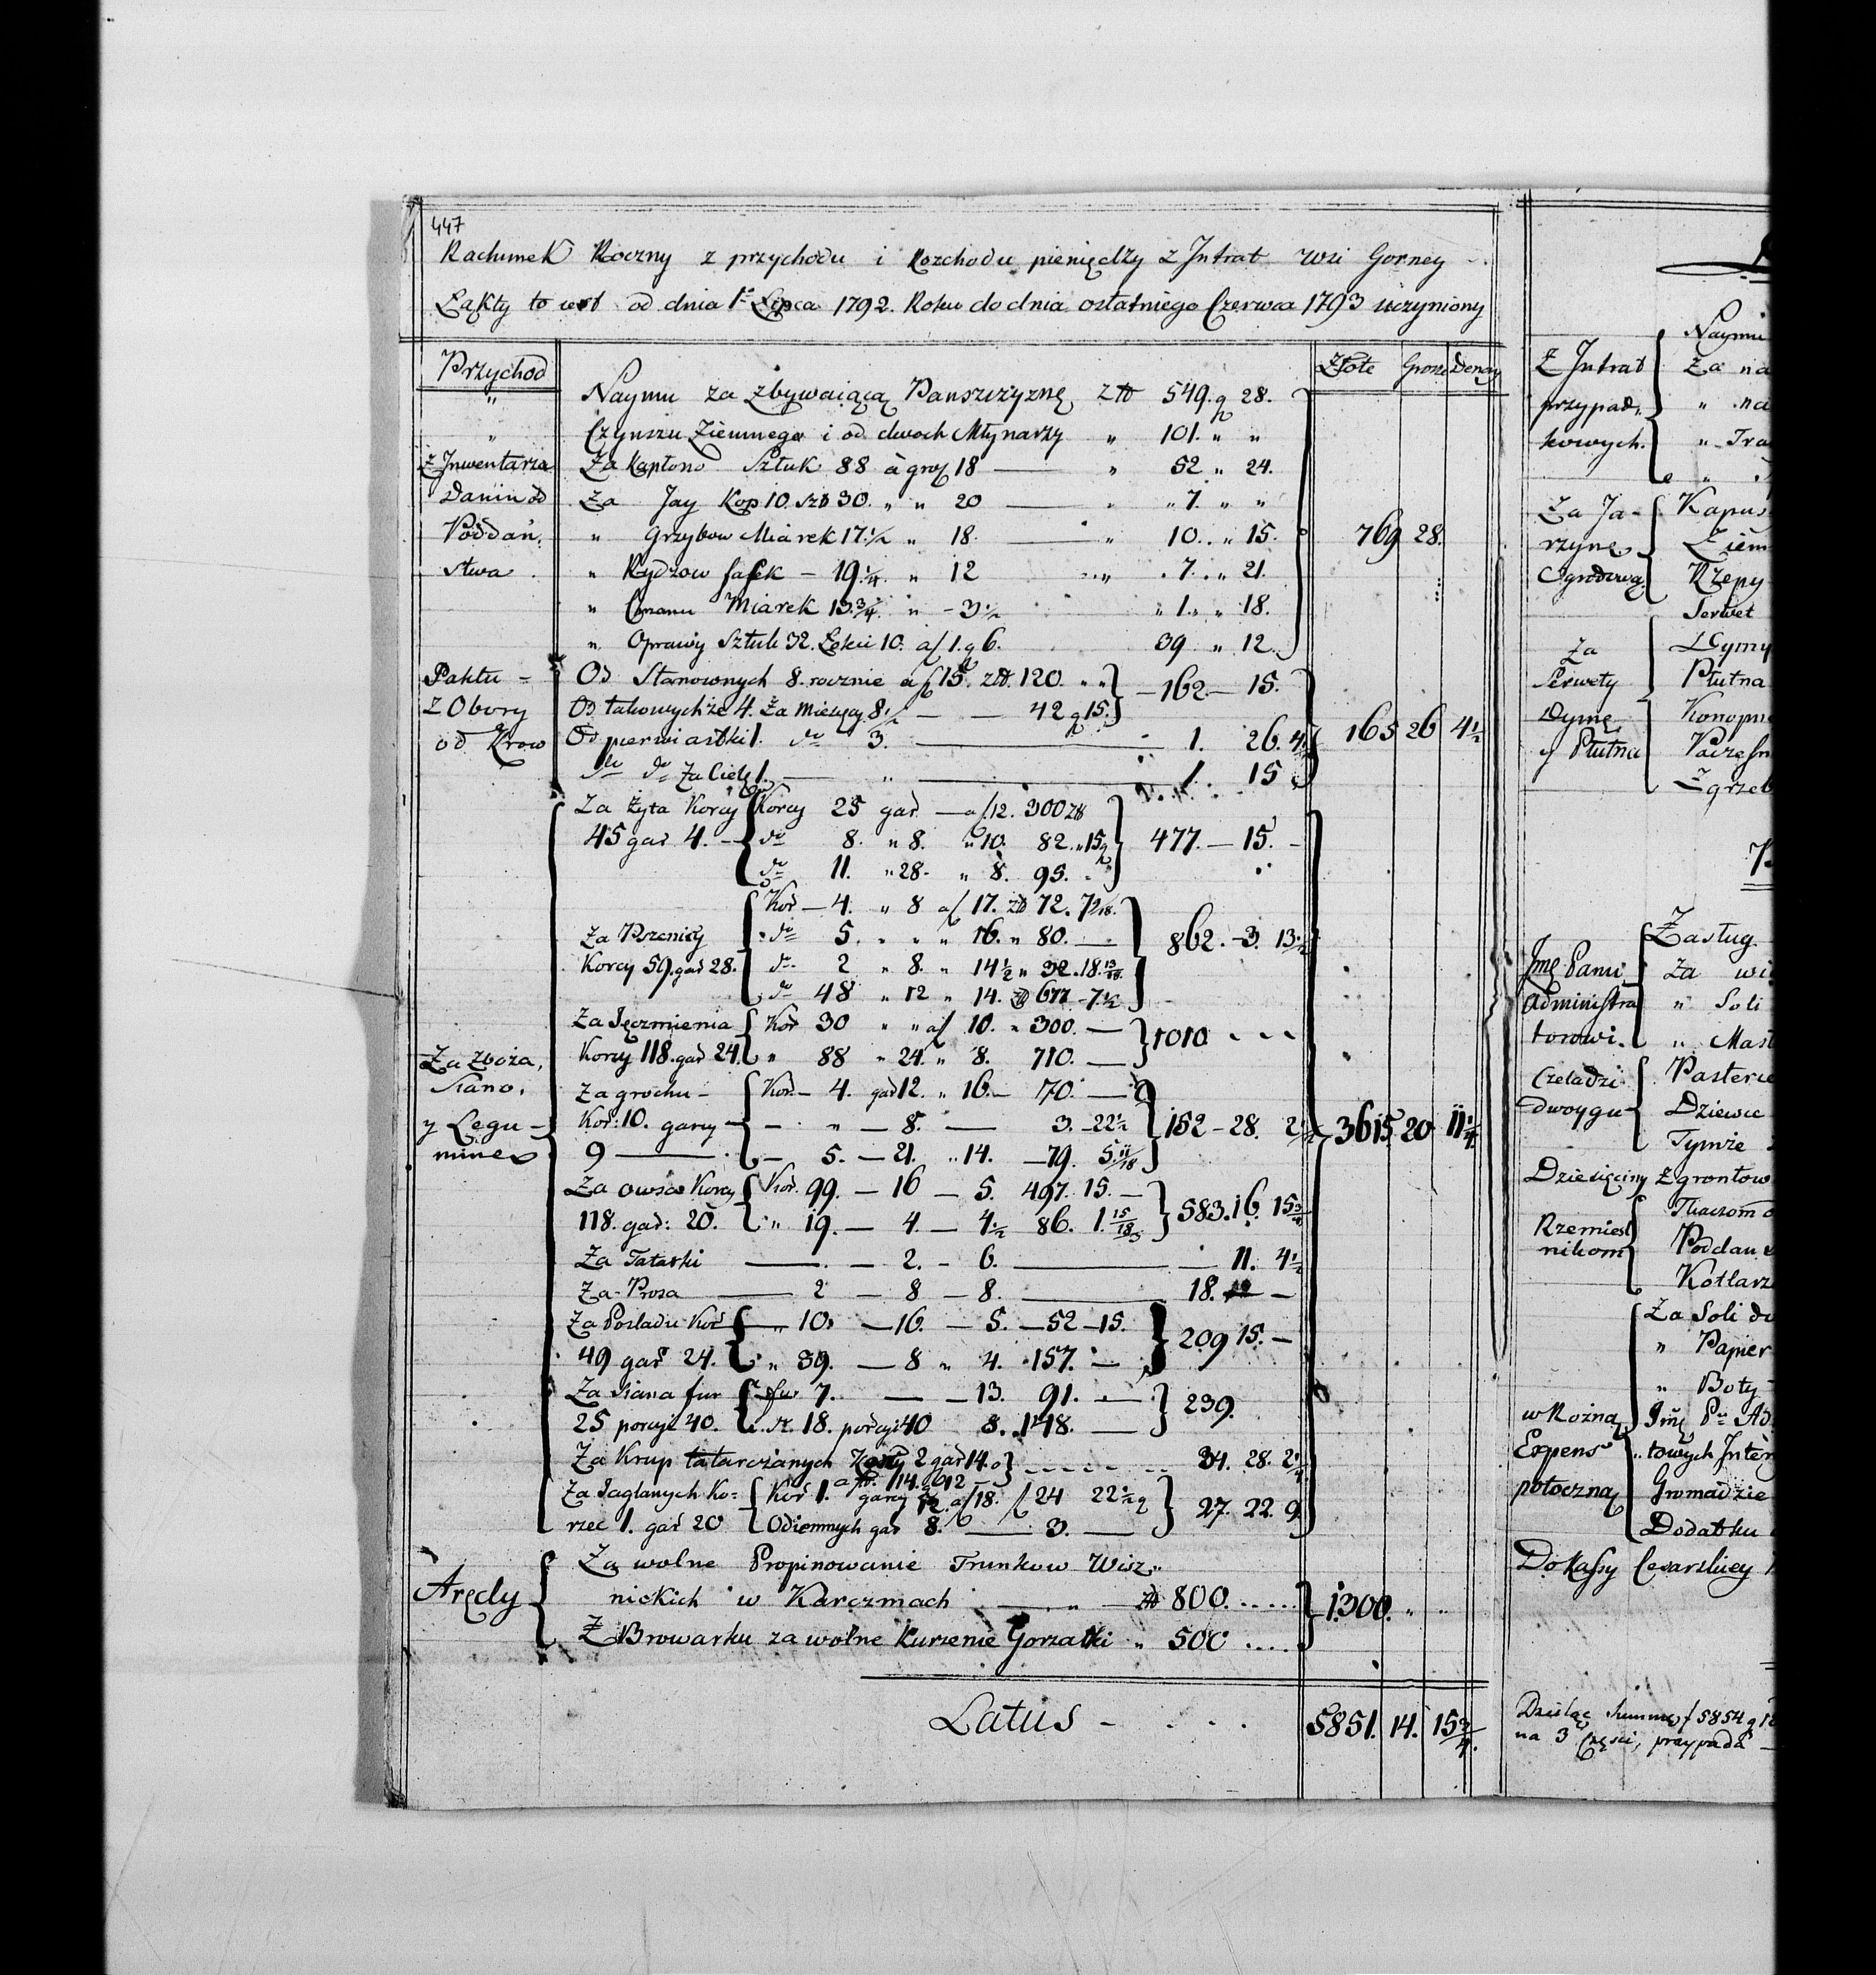 447
Rachunek Roczny z przychodu i Rozchodu pieniędzy z Jntrat wsi Gorney
Łąkty to iest od dnia 1o Lipca 1792. Roku do dnia ostatniego Czerwca 1793 uczyniony
Przychod Złote Grosze Denary
" Naymu za zbywaiącą Panszczyznę Złł 549. g 28.
" Czynszu Ziemnego i od dwoch Młynarzy " 101. " "
Z Jnwentarza Za Kapłono Sztuk 88 à grosz 18 — " 52 " 24.
Danin od Za Jay Kop 10. Szt 30. " " 20 — " 7. " "
Poddań: " Grzybow Miarek 17 1/2 " 18. — " 10. " 15. 769 28.
stwa " Rydzow fasek — 19 1/4 " 12 7. " 21.
" Miarek 13 3/4 " - 3 1/2 " 1. " 18.
" Oprawy Sztuk 32. Łokci 10. a f 1. g 6. 39 " 12.
Paktu = Od Stanownych 8. rocznie a f 15. złł. 120. " " — 162. — 15.
z Obory Od takowychże 4. Za Miesięcy 8 1/2 — — 42 g 15.
od Krow Od pierwiastki 1. do 3. — 1. 26. 4 1/2 165 26 4 1/2
do do Za Cielę 1. — " — 1. 15
Za Żyta Korcy Korcy 25 gar — a f. 12. 300 złł
45 gar 4. — do 8. " 8. " 10. 82. " 15 g 477. — 15. —
do 11. " 28. " 8. 95.
Kor — 4. " 8 a f 17. zł 72. 7
Za Pszenicy do 5. " " " 16. " 80. — 862. — 3. 13 1/2
Korcy 59. gar 28. do 2 " 8. " 14 1/2 " 32. 18.
do 48 " 12 " 14. zł 677 — 7 1/2
Za Jęczmienia Kor 30 " " a f 10. " 300. — 1010 - - -
Korcy 118. gar 24. " 88 " 24. " 8. 710. —
Za zboża, Siano, y Legu- mine
Za grochu — Kor. — 4. gar 12. " 16. — 70. —
Kor: 10. garcy — — " — 8. — 3. — 22 1/2 152 — 28. 3615 20 11 1/4
9 — 5. — 21. " 14. — 79. 5 11/18
Za owsa Korcy Kor. 99. — 16 — 5. 497. 15. —
118. gar: 20. " 19. — 4. — 4 1/2 86. 1. 15/18 583. 16. 15 3/4
Za Tatarki — — 2. — 6. — 11. 4 1/2
Za Prosa — 2 — 8 — 8. — 18. —
Za Posladu Kor " 10. — 16. — 5. — 52 — 15. 209 15. —
49 gar 24. " 39. — 8 " 4. 157. —
Za Siana fur fur 7. — — 13. 91. — 239.
25 porcyi 40. do. 18. porcyi 40 8. 148. —
Za Krup tatarczanych Korcy 2 gar 14. 34. 28. 2 1/4
a f 14. g 12
Za Jaglanych Ko= Kor 1. garcy 12. a f 18. f 24 22 1/2 g 27. 22. 9.
rzec 1. gar 20 Odiemnych gar 8. — 3. —
Za wolne Propinowanie Trunkow Wisz "
Arędy nickich w Karczmach — " — zł 800. ..... 1300. " "
Z Browarku za wolne Kurzenie Gorzałki " 500 ....
Latus - . . . 5851. 14. 15 3/4.
Z Jntrat
przypad,
kowych.
Naymu
Za na
" na
" Tra
Za Ja-
rzynę
Ogrodową
Kapus
Ziem
Rzepy
Za
Serwety
Dymę
y Płutna
Serwet
Dymy
Płutna
Konopne
Paczesn
Zgrzeb
Jmę Panu
Administra
torowi.
Zasług
Za wi
" Soli
" Masł
Czeladzi
dwoygu
Pasterce
Dziewce
Tymże
Dziesięciny Zgrontow
Rzemiesl
nikom
Tkaczom
Poddan
Kotlarz
Za Soli
" Papier
" Boty
w Rożną
Expens
potoczną
towych Inter
Gromadzie
Dodatku
Do Kassy Cesarskiey
Dzieląc Summę f 5854 g 18
na 3 Części, przypada —